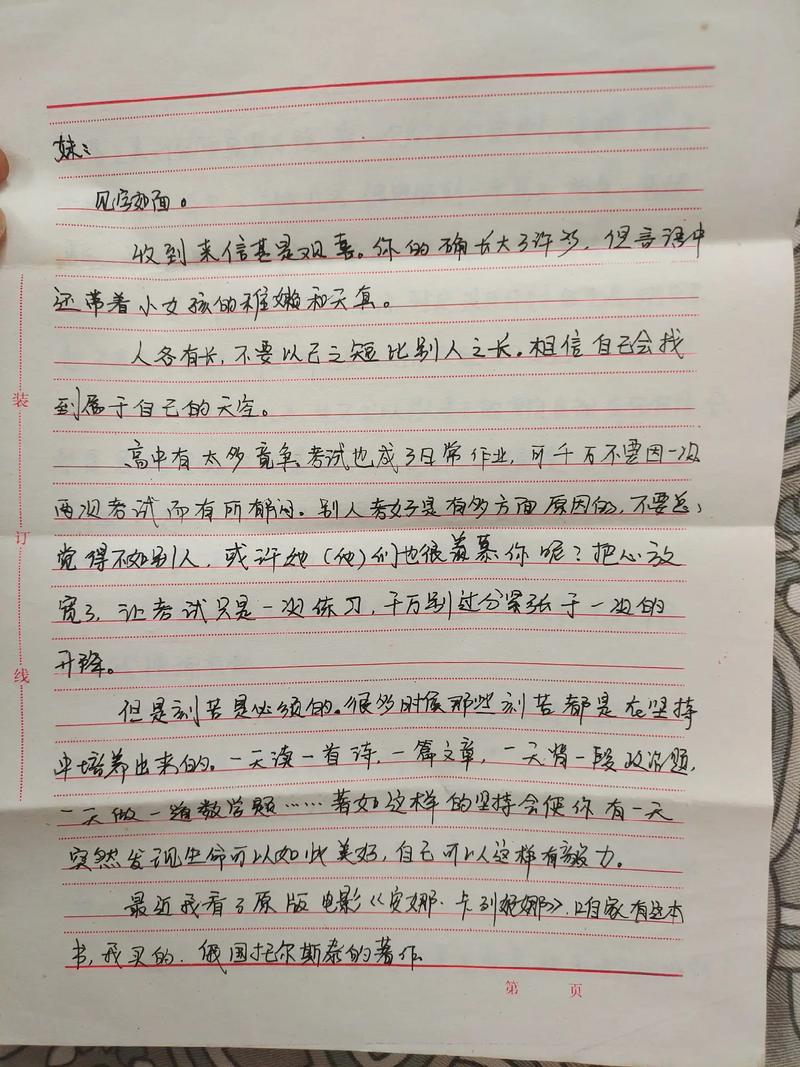 妹：
见字如面。
收到来信甚是欢喜。你的确长大了许多，但言语中
还带着小女孩的稚嫩和天真。
人各有长，不要以己之短比别人之长。相信自己会找
到属于自己的天空。
高中有太多竞争，考试也成了日常作业，可千万不要因一次
两次考试而有所郁闷。别人考好是有多方面原因的，不要总
觉得不如别人，或许她（他）们也很羡慕你呢？把心放
宽了，让考试只是一次练习，千万别过分紧张于一次的
升降。
但是刻苦是必须的。很多时候那些刻苦都是在坚持
中培养出来的。一天读一首诗，一篇文章，一天背一段政治题，
一天做一道数学题……诸如这样的坚持会使你有一天
突然发现生命可以如此美好，自己可以这样有毅力。
最近我看了原版电影《安娜·卡列妮娜》，咱家有这本
书，我买的，俄国托尔斯泰的著作
装
订
线
第 页